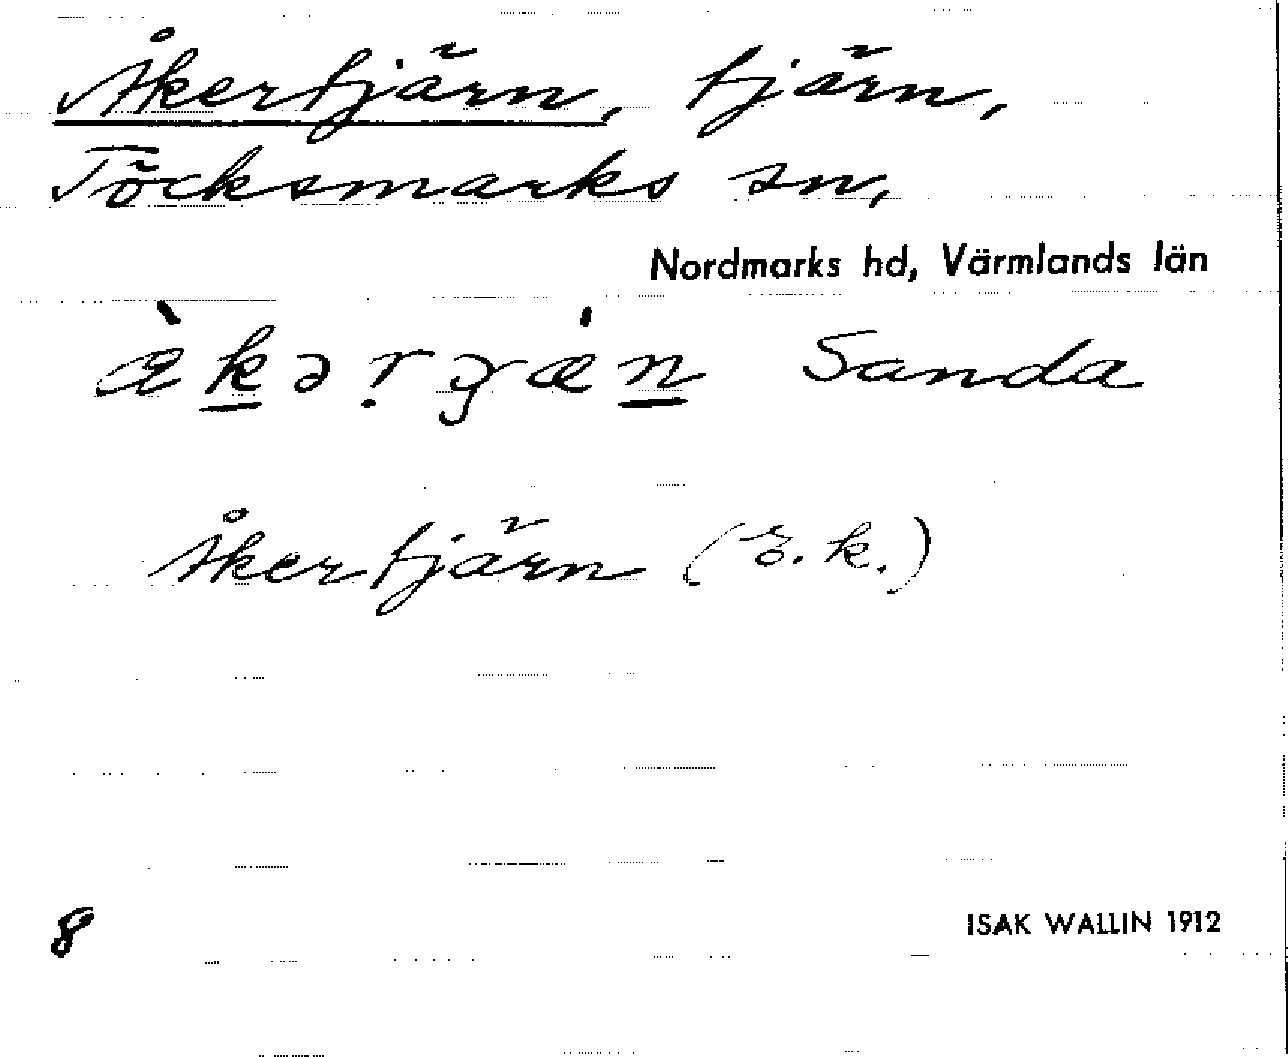 Åkertjärn, tjärn,
Töcksmarks sn,
Nordmarks hd, Värmlands län
Sanda
Åkertjärn (ö.k.)
8
ISAK WALLIN 1912